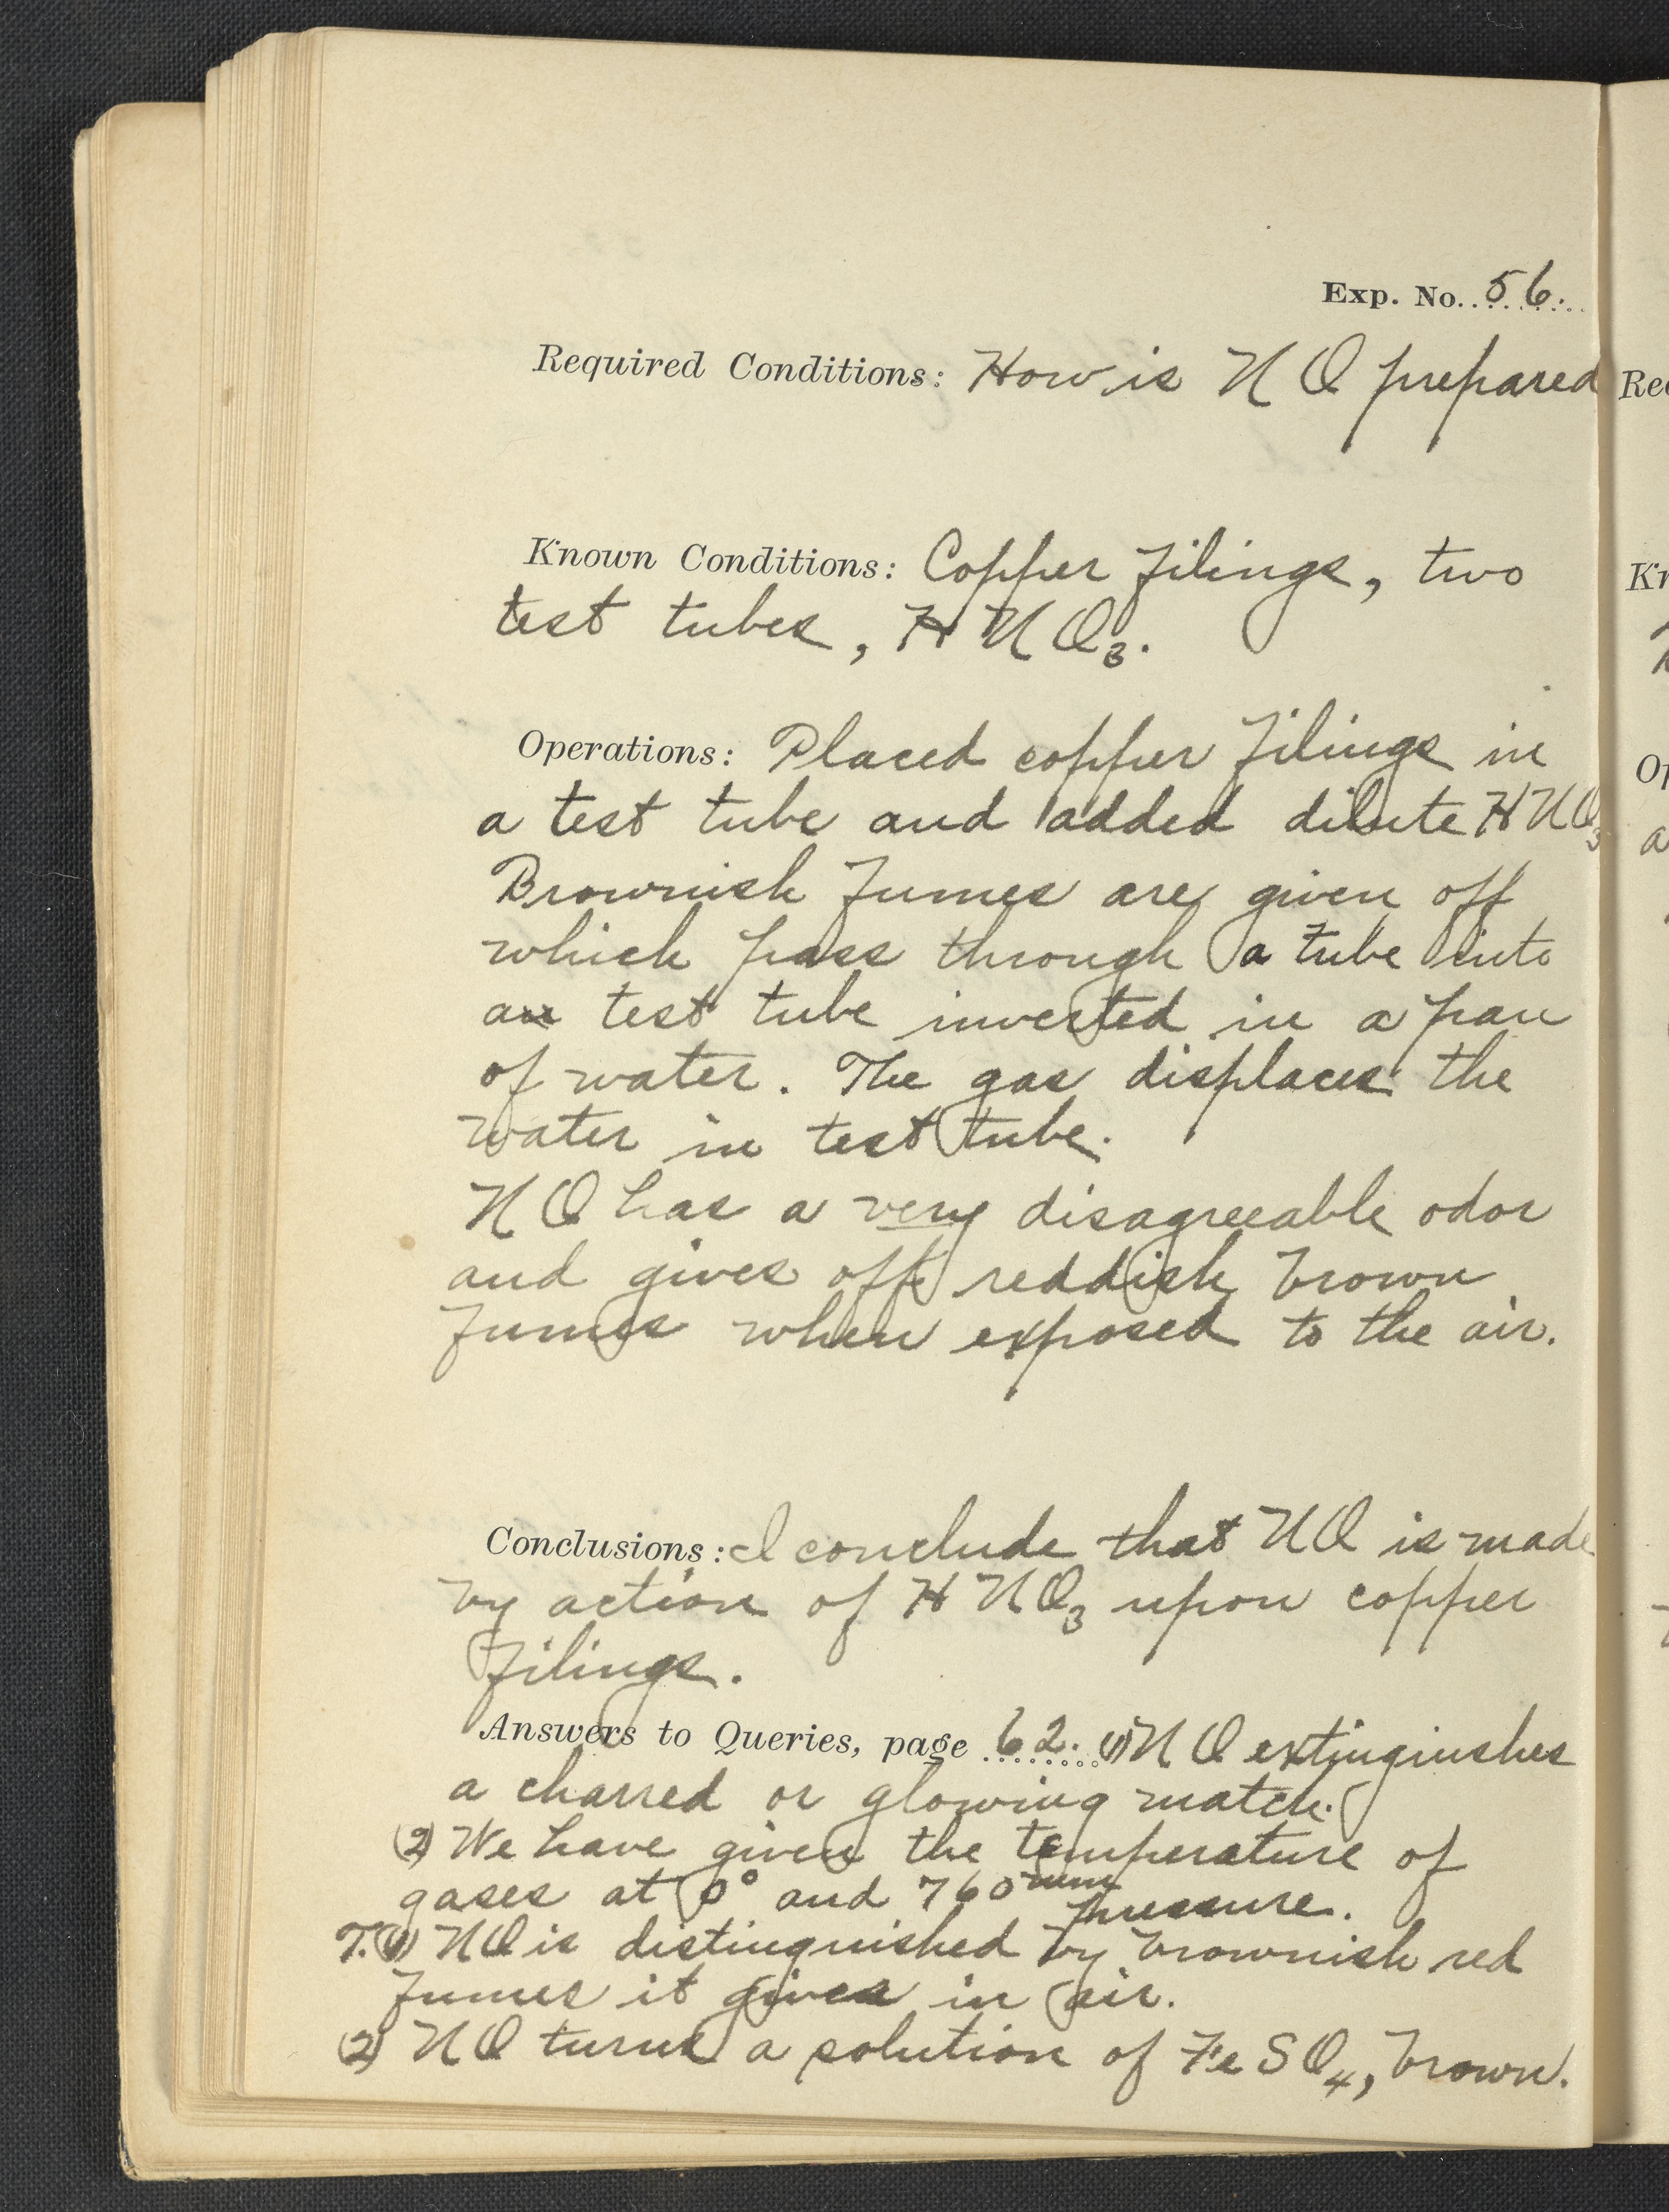 Exp. No. 56.
Required Conditions: How is NO prepared
Known Conditions: Copper filings, two
test tubes, HNO3.
Operations: Placed copper filings in
a test tube and added dilute HNO3
Brownish fumes are given off
which pass through a tube into
an test tube inverted in a pan
of water. The gas displaces the
water in test tube.
NO has a very disagreeable odor
and gives off reddish brown
fumes when exposed to the air.
Conclusions: I conclude that NO is made
by action of HNO3 upon copper
filings.
Answers to Queries, page 62. (1) NO extinginshes
a charred or glowing match.
(2) We have given the temperature of
gases at 0° and 760 mm
pressure.
T. (1) NO is distinguished by brownish red
fumes it gives in air.
(2) NO turns a solution of FeSO4, brown.